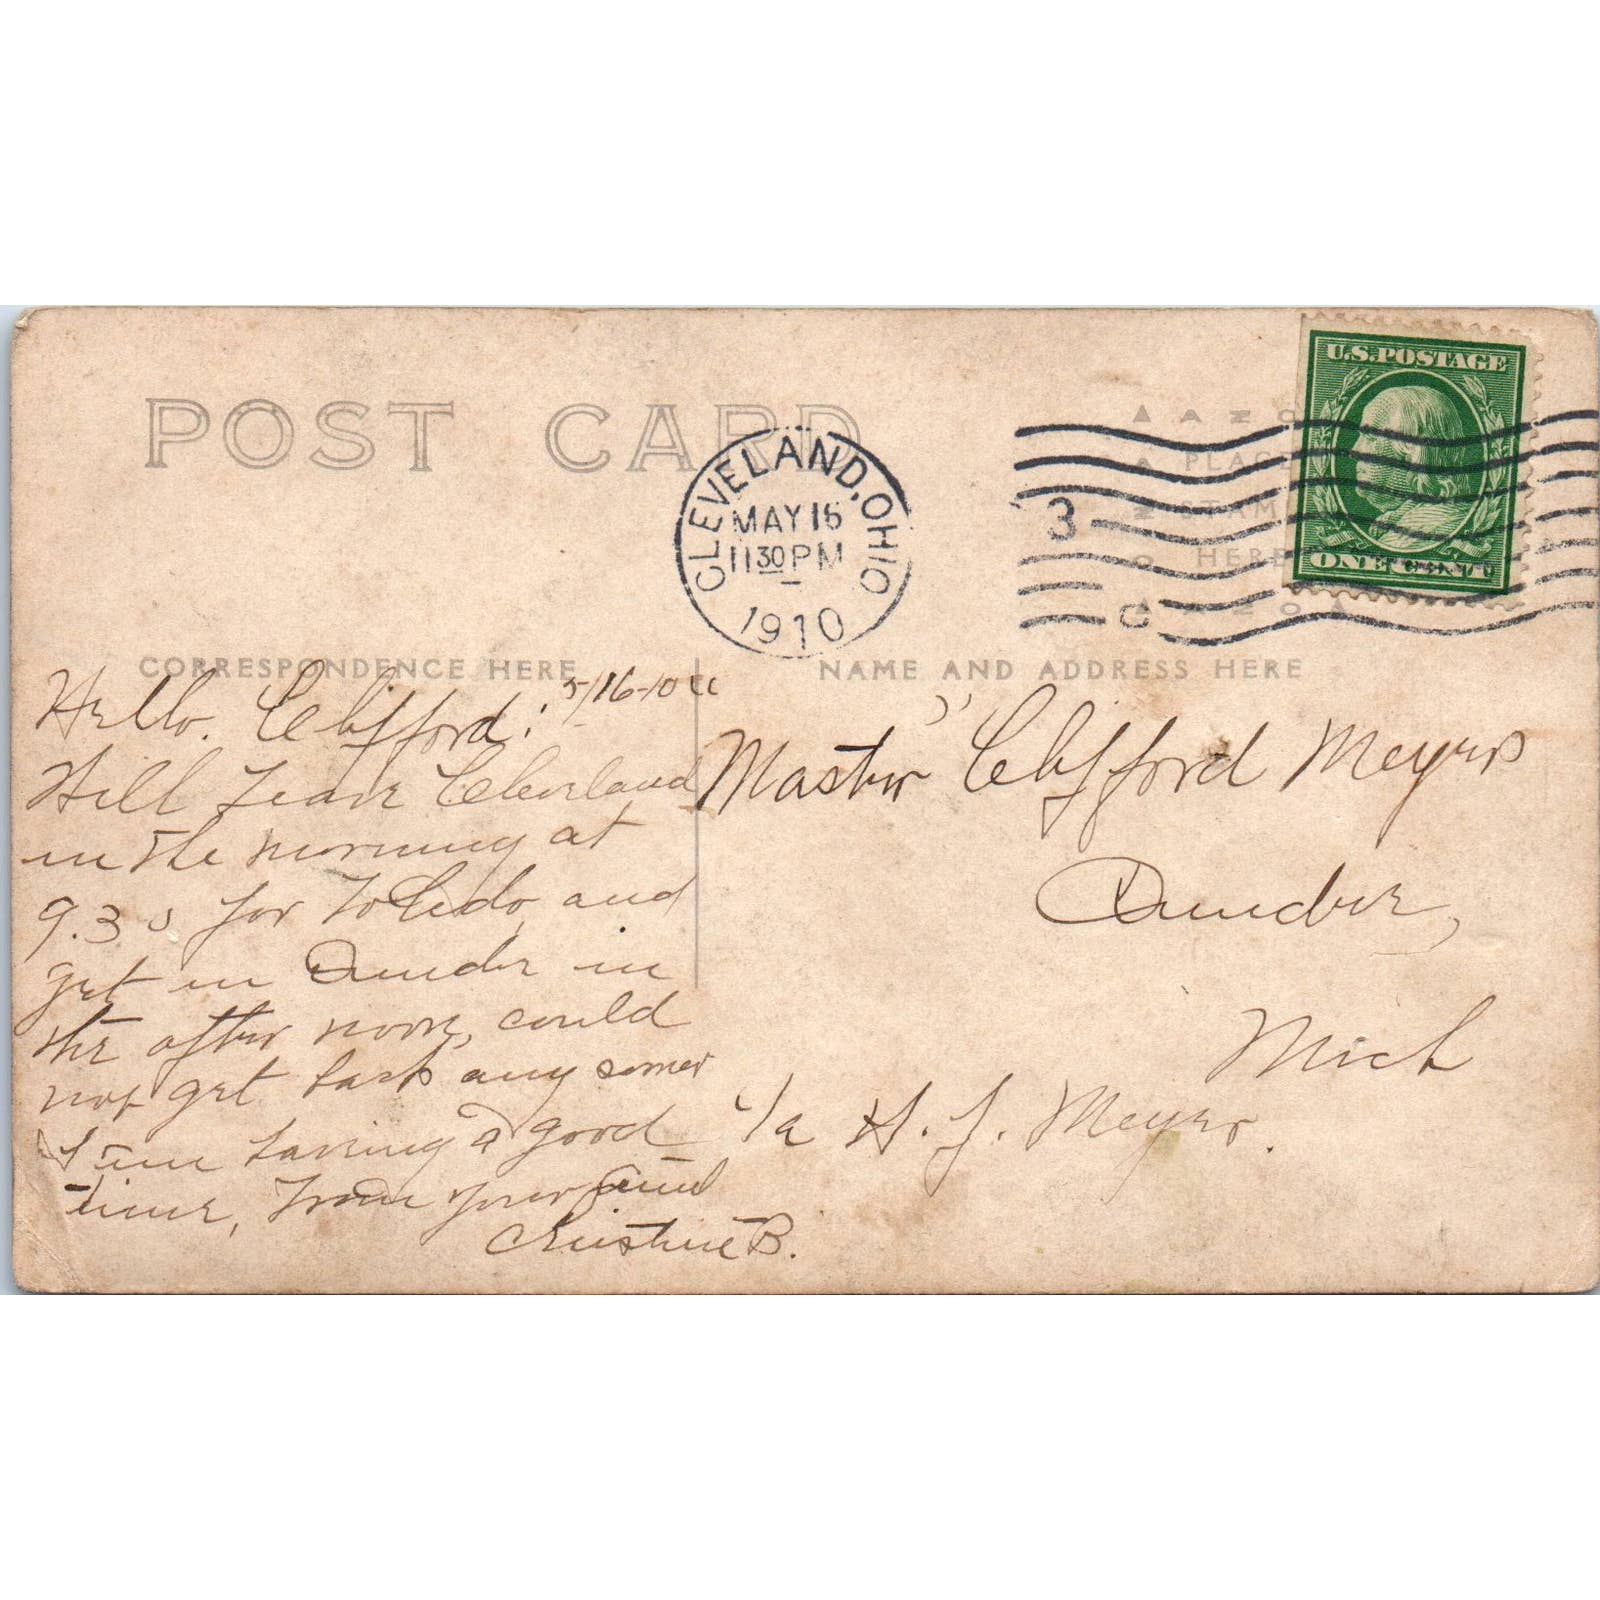 POST CARD
CLEVELAND, OHIO
MAY 16
11 30 PM
1910
3
C
AZO
PLAC
STAM
HERE
AZO
U.S. POSTAGE
ONE CENT
CORRESPONDENCE HERE
NAME AND ADDRESS HERE
Hello. Clifford! 5/16-10
Will Leave Cleveland
in the morning at
9.30 for Toledo, and
get in Dundee in
the after noon, could
not get back any sooner
I am having a good
time, From your
Christine B.
Master Clifford Meyers
Dundee,
Mich
c/a H. J. Meyers.